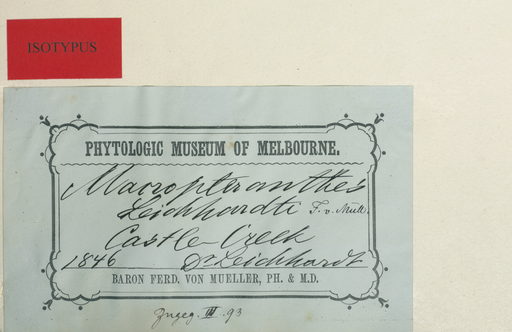 ISOTYPUS
PHYTOLOGIC MUSEUM OF MELBOURNE.
Macropteranthes
Leichhardti F. v. Müll.
Castle Creek
1846 Dr Leichhardt
BARON FERD. VON MUELLER, PH. & M.D.
Zugeg. III. 93